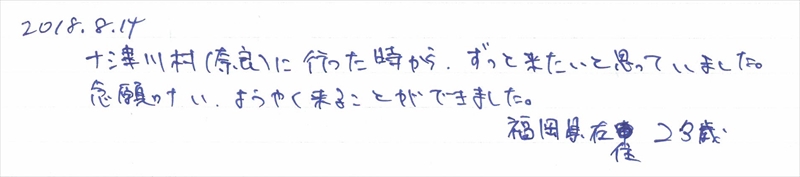 2018.8.14
十津川村(奈良)に行った時から、ずっと来たいと思っていました。
念願叶い、ようやく来ることができました。
福岡県在住 23歳